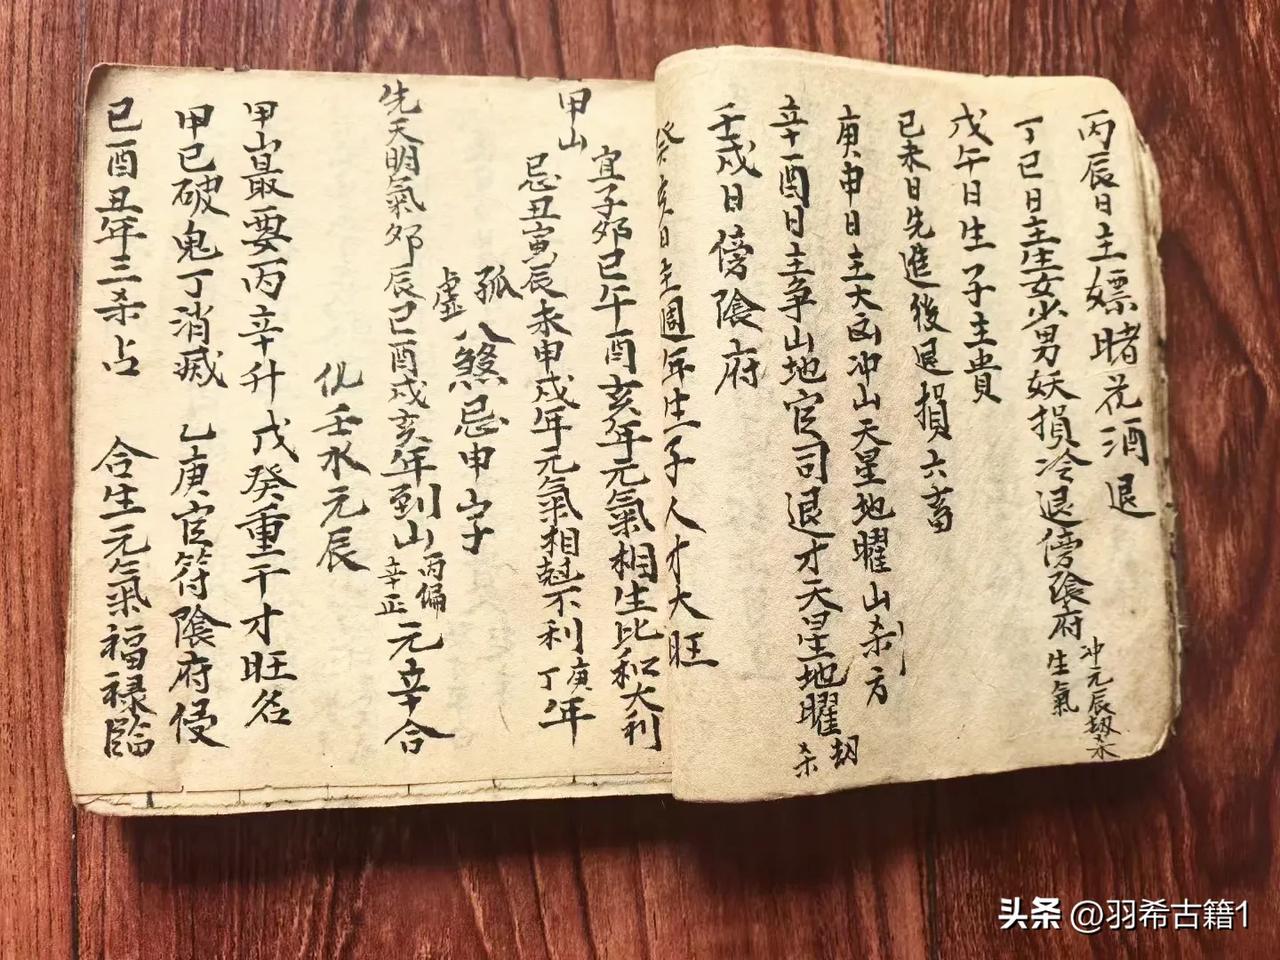 丙辰日主嫖賭花酒退
丁巳日主生女少男妖損冷退傍陰府生氣
冲元辰劫杀
戊午日生子主貴
己未日先進後退損六畜
庚申日主大凶冲山天星地曜山杀方
辛酉日主争山地官司退才天星地曜劫杀
壬戌日傍陰府
癸亥日主週年生子人才大旺
甲山
宜子夘巳午酉亥年元氣相生比和大利
忌丑寅辰未申戌年元氣相尅不利庚丁年
孤虚八煞忌申山子
先天明氣夘辰巳酉戌亥年到山丙偏辛正元辛合
仇壬水元辰
甲山最要丙辛升戊癸重干才旺名
甲己破鬼丁消滅 乙庚官符陰府侵
巳酉丑年三杀占 合生元氣福禄臨
头条 @羽希古籍1